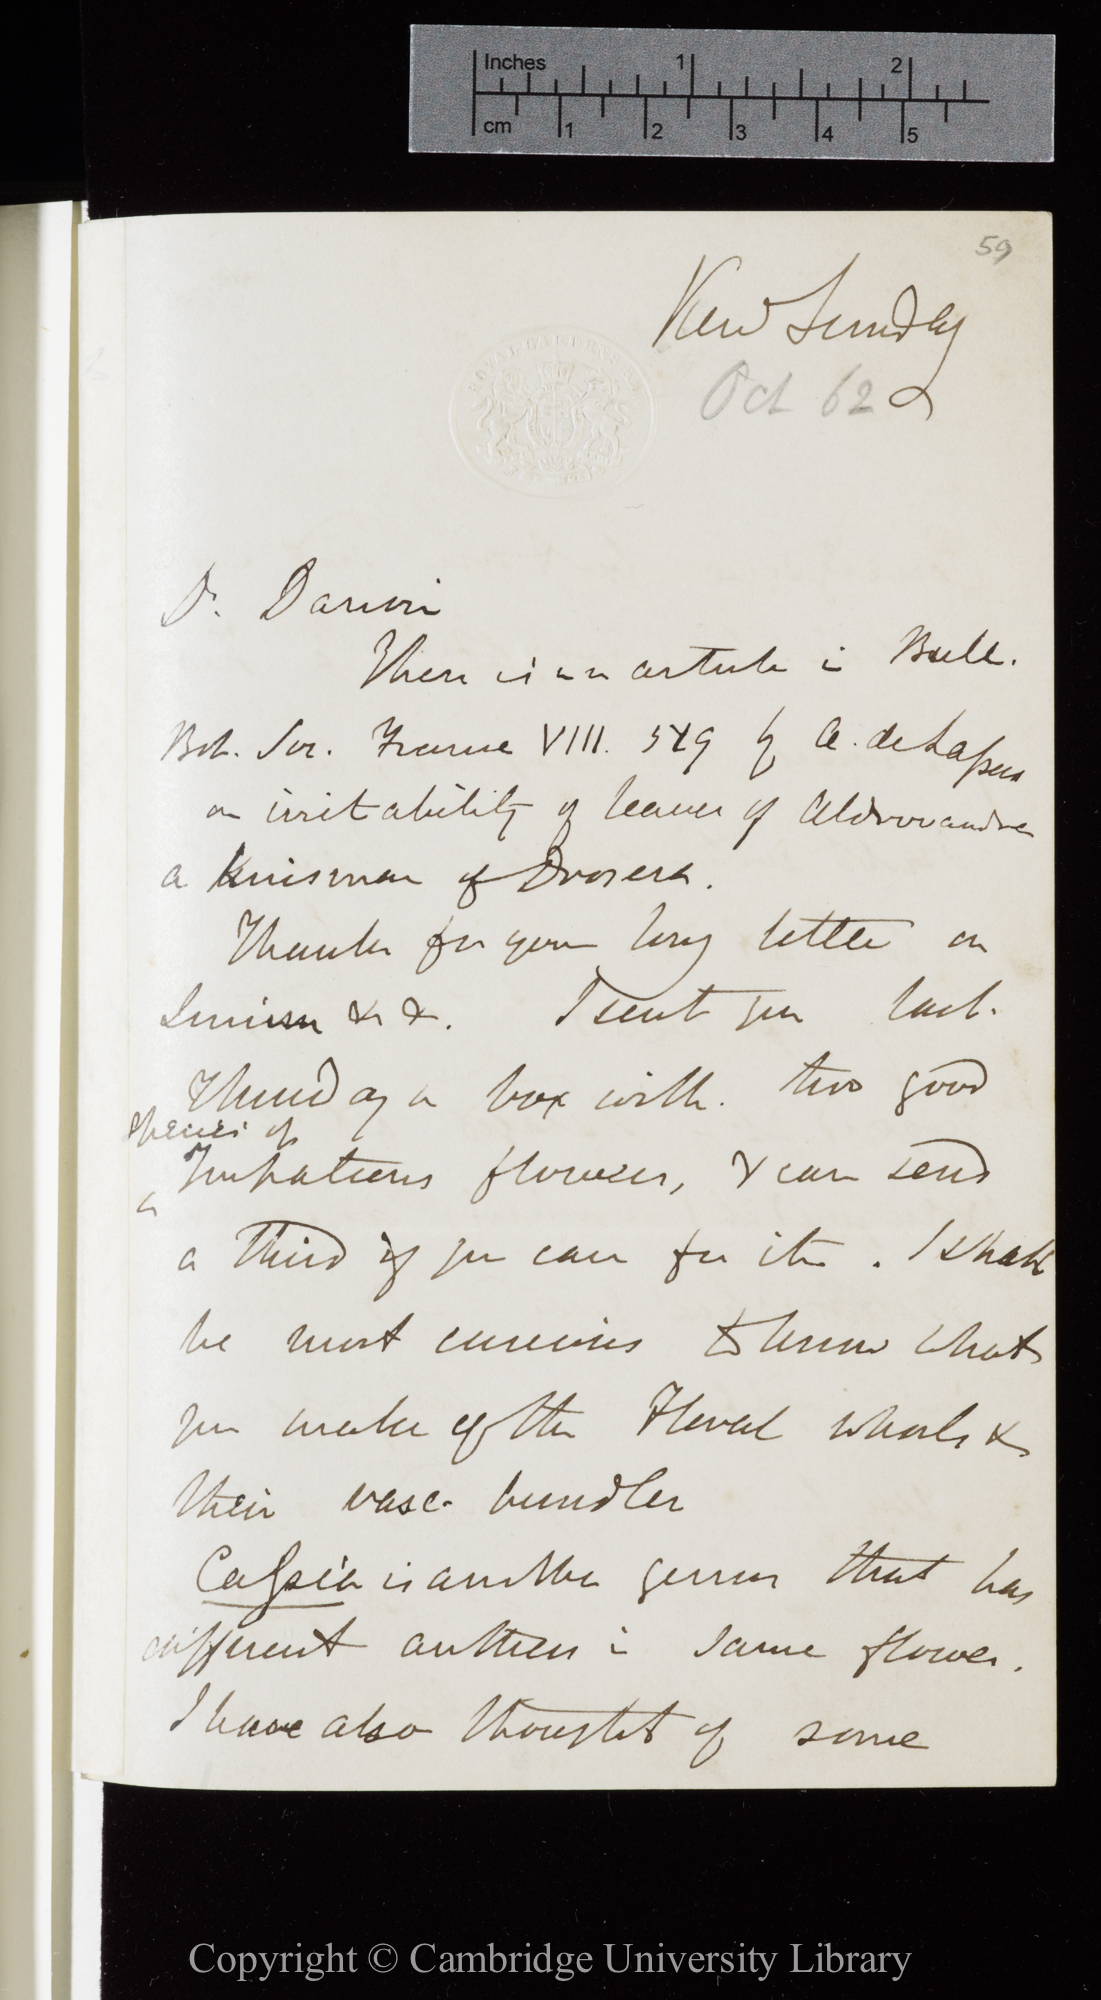 Inches 1 2
cm 1 2 3 4 5
59
Kew Sunday
Oct 62
Dr. Darwin
There is an article in Bull.
Bot. Soc. France VIII. 519 by A. de
on irritability of leaves of Aldrovandra
a kinsman of Drosera.
Thanks for your long letter on
Linum & &. I sent you last
Thursday a box with two good
species of
Impatiens flowers, & can send
a third if you care for it. I shall
be most curious to know what
you make of the Floral whorls &
their vasc. bundles
Cassia is another genus that has
different anthers in same flower.
I have also thought of some
Copyright © Cambridge University Library